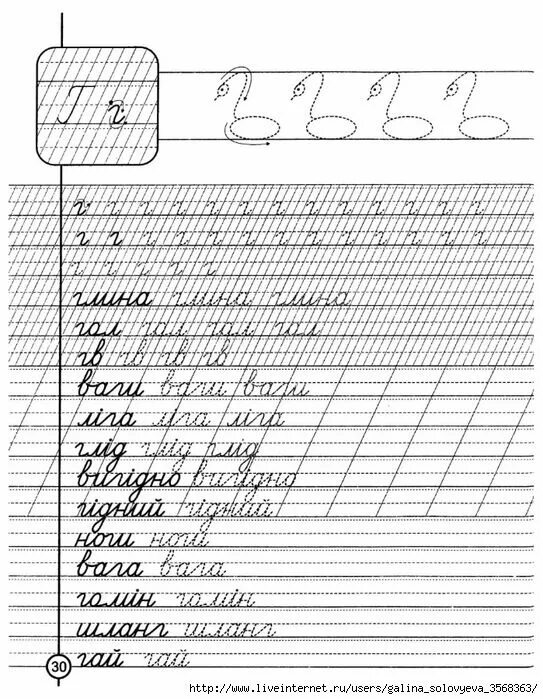 Г г
г г г г г г г г г г г г г
г г г г г г г г г г г г г
г г г г г
глина глина глина
гол гол гол гол
гв гв гв гв
ваги ваги ваги
ліга ліга ліга
глід глід глід
вигідно вигідно
гідний гідний
ноги ноги
вага вага
гомін гомін
шланг шланг
гай гай
30
http://www.liveinternet.ru/users/galina_solovyeva_3568363/